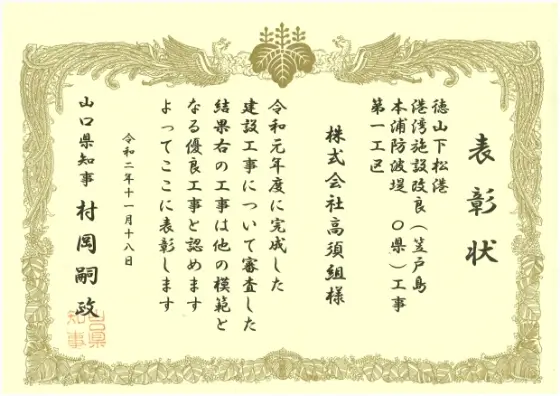 表彰状
徳山下松港
港湾施設改良（笠戸島
本浦防波堤　〇県）工事
第一工区
株式会社高須組様
令和元年度に完成した
建設工事について審査した
結果右の工事は他の模範と
なる優良工事と認めます
よってここに表彰します
令和二年十一月十八日
山口県知事　村岡嗣政
山口県
知事